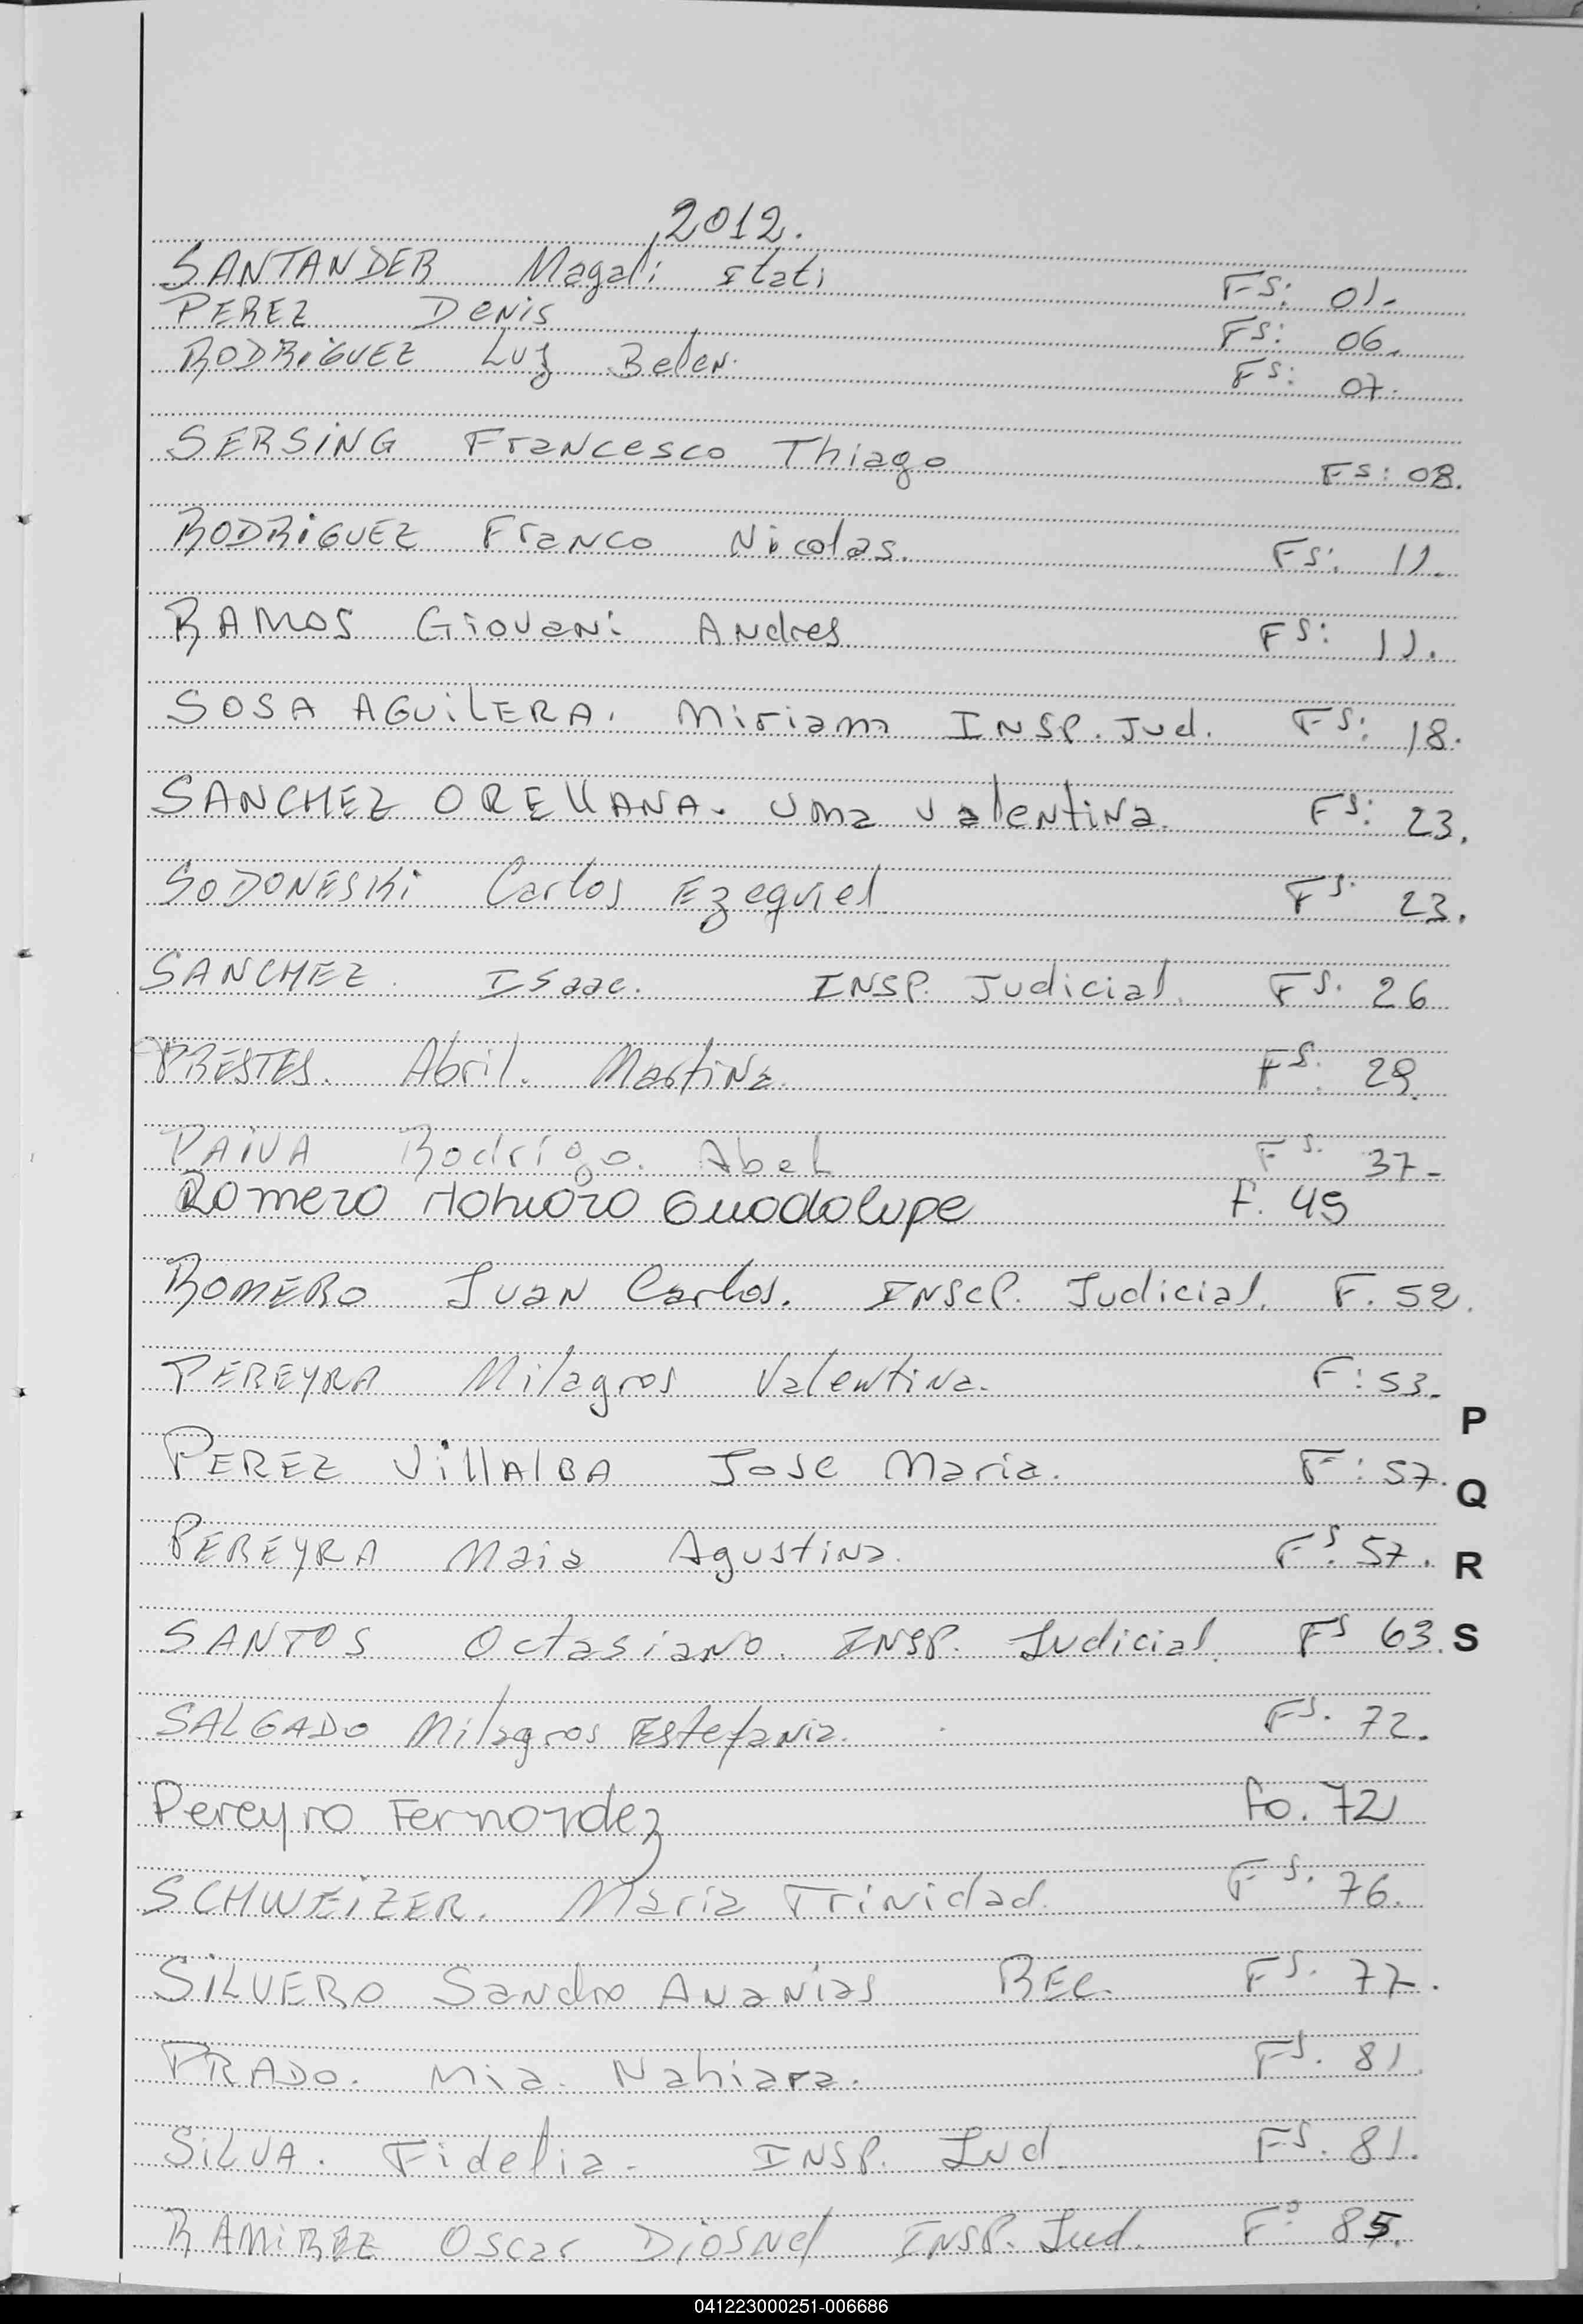 2012.
SANTANDER Magali Itati Fs: 01.
PEREZ Denis Fs: 06.
RODRIGUEZ Luz Belen. Fs: 07.
SERSING Francesco Thiago Fs: 08.
RODRIGUEZ Franco Nicolas. Fs: 11.
RAMOS Giovani Andres Fs: 11.
SOSA AGUILERA. Miriam INSP. Jud. Fs: 18.
SANCHEZ ORELLANA. Uma Valentina. Fs: 23.
SODONESKI Carlos Ezequiel Fs. 23.
SANCHEZ. Isaac. INSP. Judicial. Fs. 26
PRESTES. Abril. Martina. Fs. 29.
PAIVA Rodrigo. Abel Fs. 37-
Romero Guadalupe F. 49
ROMERO Juan Carlos. INSCP. Judicial. F. 52.
PEREYRA Milagros Valentina. F: 53.
PEREZ VILLALBA Jose Maria. F: 57.
PEREYRA Maia Agustina. Fs. 57.
SANTOS Octasiano. INSP. Judicial. Fs 63.
SALGADO Milagros Estefania. Fs. 72.
Pereyra Fernandez fo. 72
SCHWEIZER. Maria Trinidad. Fs. 76.
SILVERO Sandro Ananias REC. Fs. 77.
PRADO. Mia. Nahiara. Fs. 81.
SILVA. Fidelia. INSP. Jud. Fs. 81.
RAMIREZ Oscar Diosnel INSP. Jud. Fº 85.
P
Q
R
S
041223000251-006686